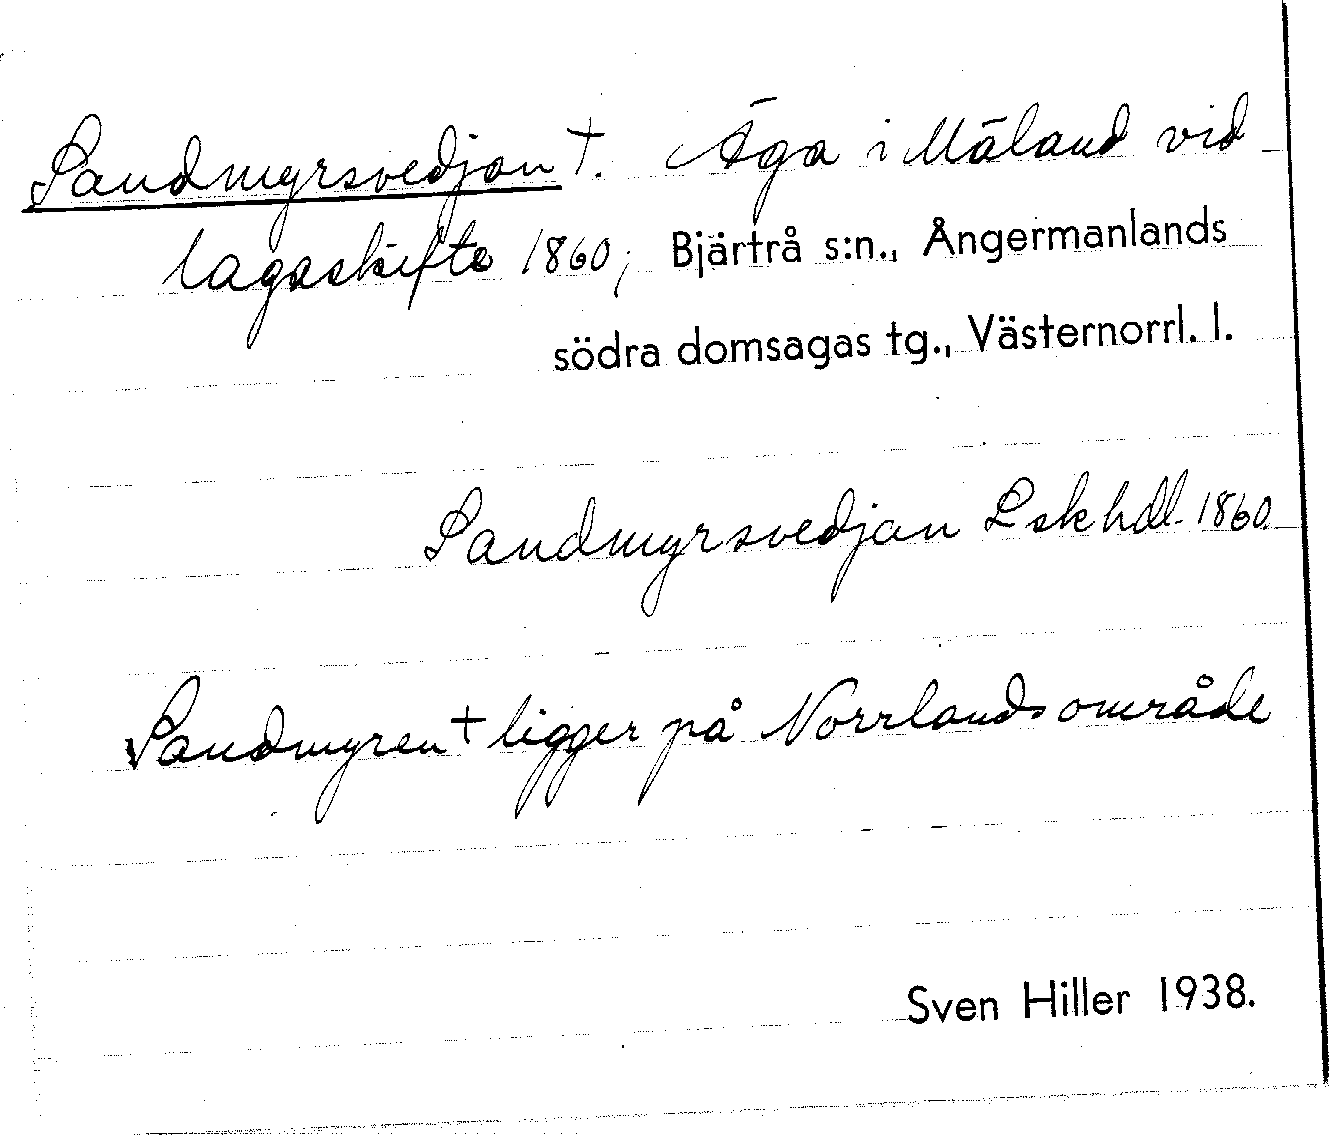 Sandmyrsvedjan †. Äga i Mäland vid
lagaskifte 1860; Bjärtrå s:n., Ångermanlands
södra domsagas tg., Västernorrl. l.
Sandmyrsvedjan Lskhdl 1860
Sandmyren † ligger på Norrlands område
Sven Hiller 1938.